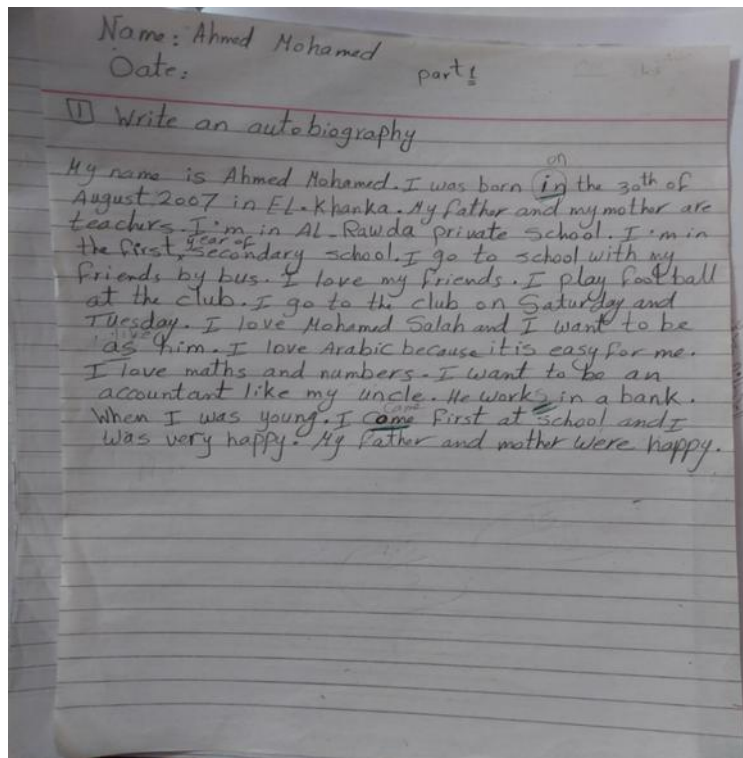 Name: Ahmed Mohamed
Date:
part 1
1 Write an autobiography
on
My name is Ahmed Mohamed. I was born in the 30th of
August 2007 in EL-Khanka. My father and my mother are
teachers. I'm in AL-Rawda private school. I'm in
year of
the first, secondary school. I go to school with my
friends by bus. I love my friends. I play football
at the club. I go to the club on Saturday and
Tuesday. I love Mohamed Salah and I want to be
like
as him. I love Arabic because it is easy for me.
I love maths and numbers. I want to be an
accountant like my uncle. He works in a bank.
came
When I was young. I come first at school and I
was very happy. My father and mother were happy.